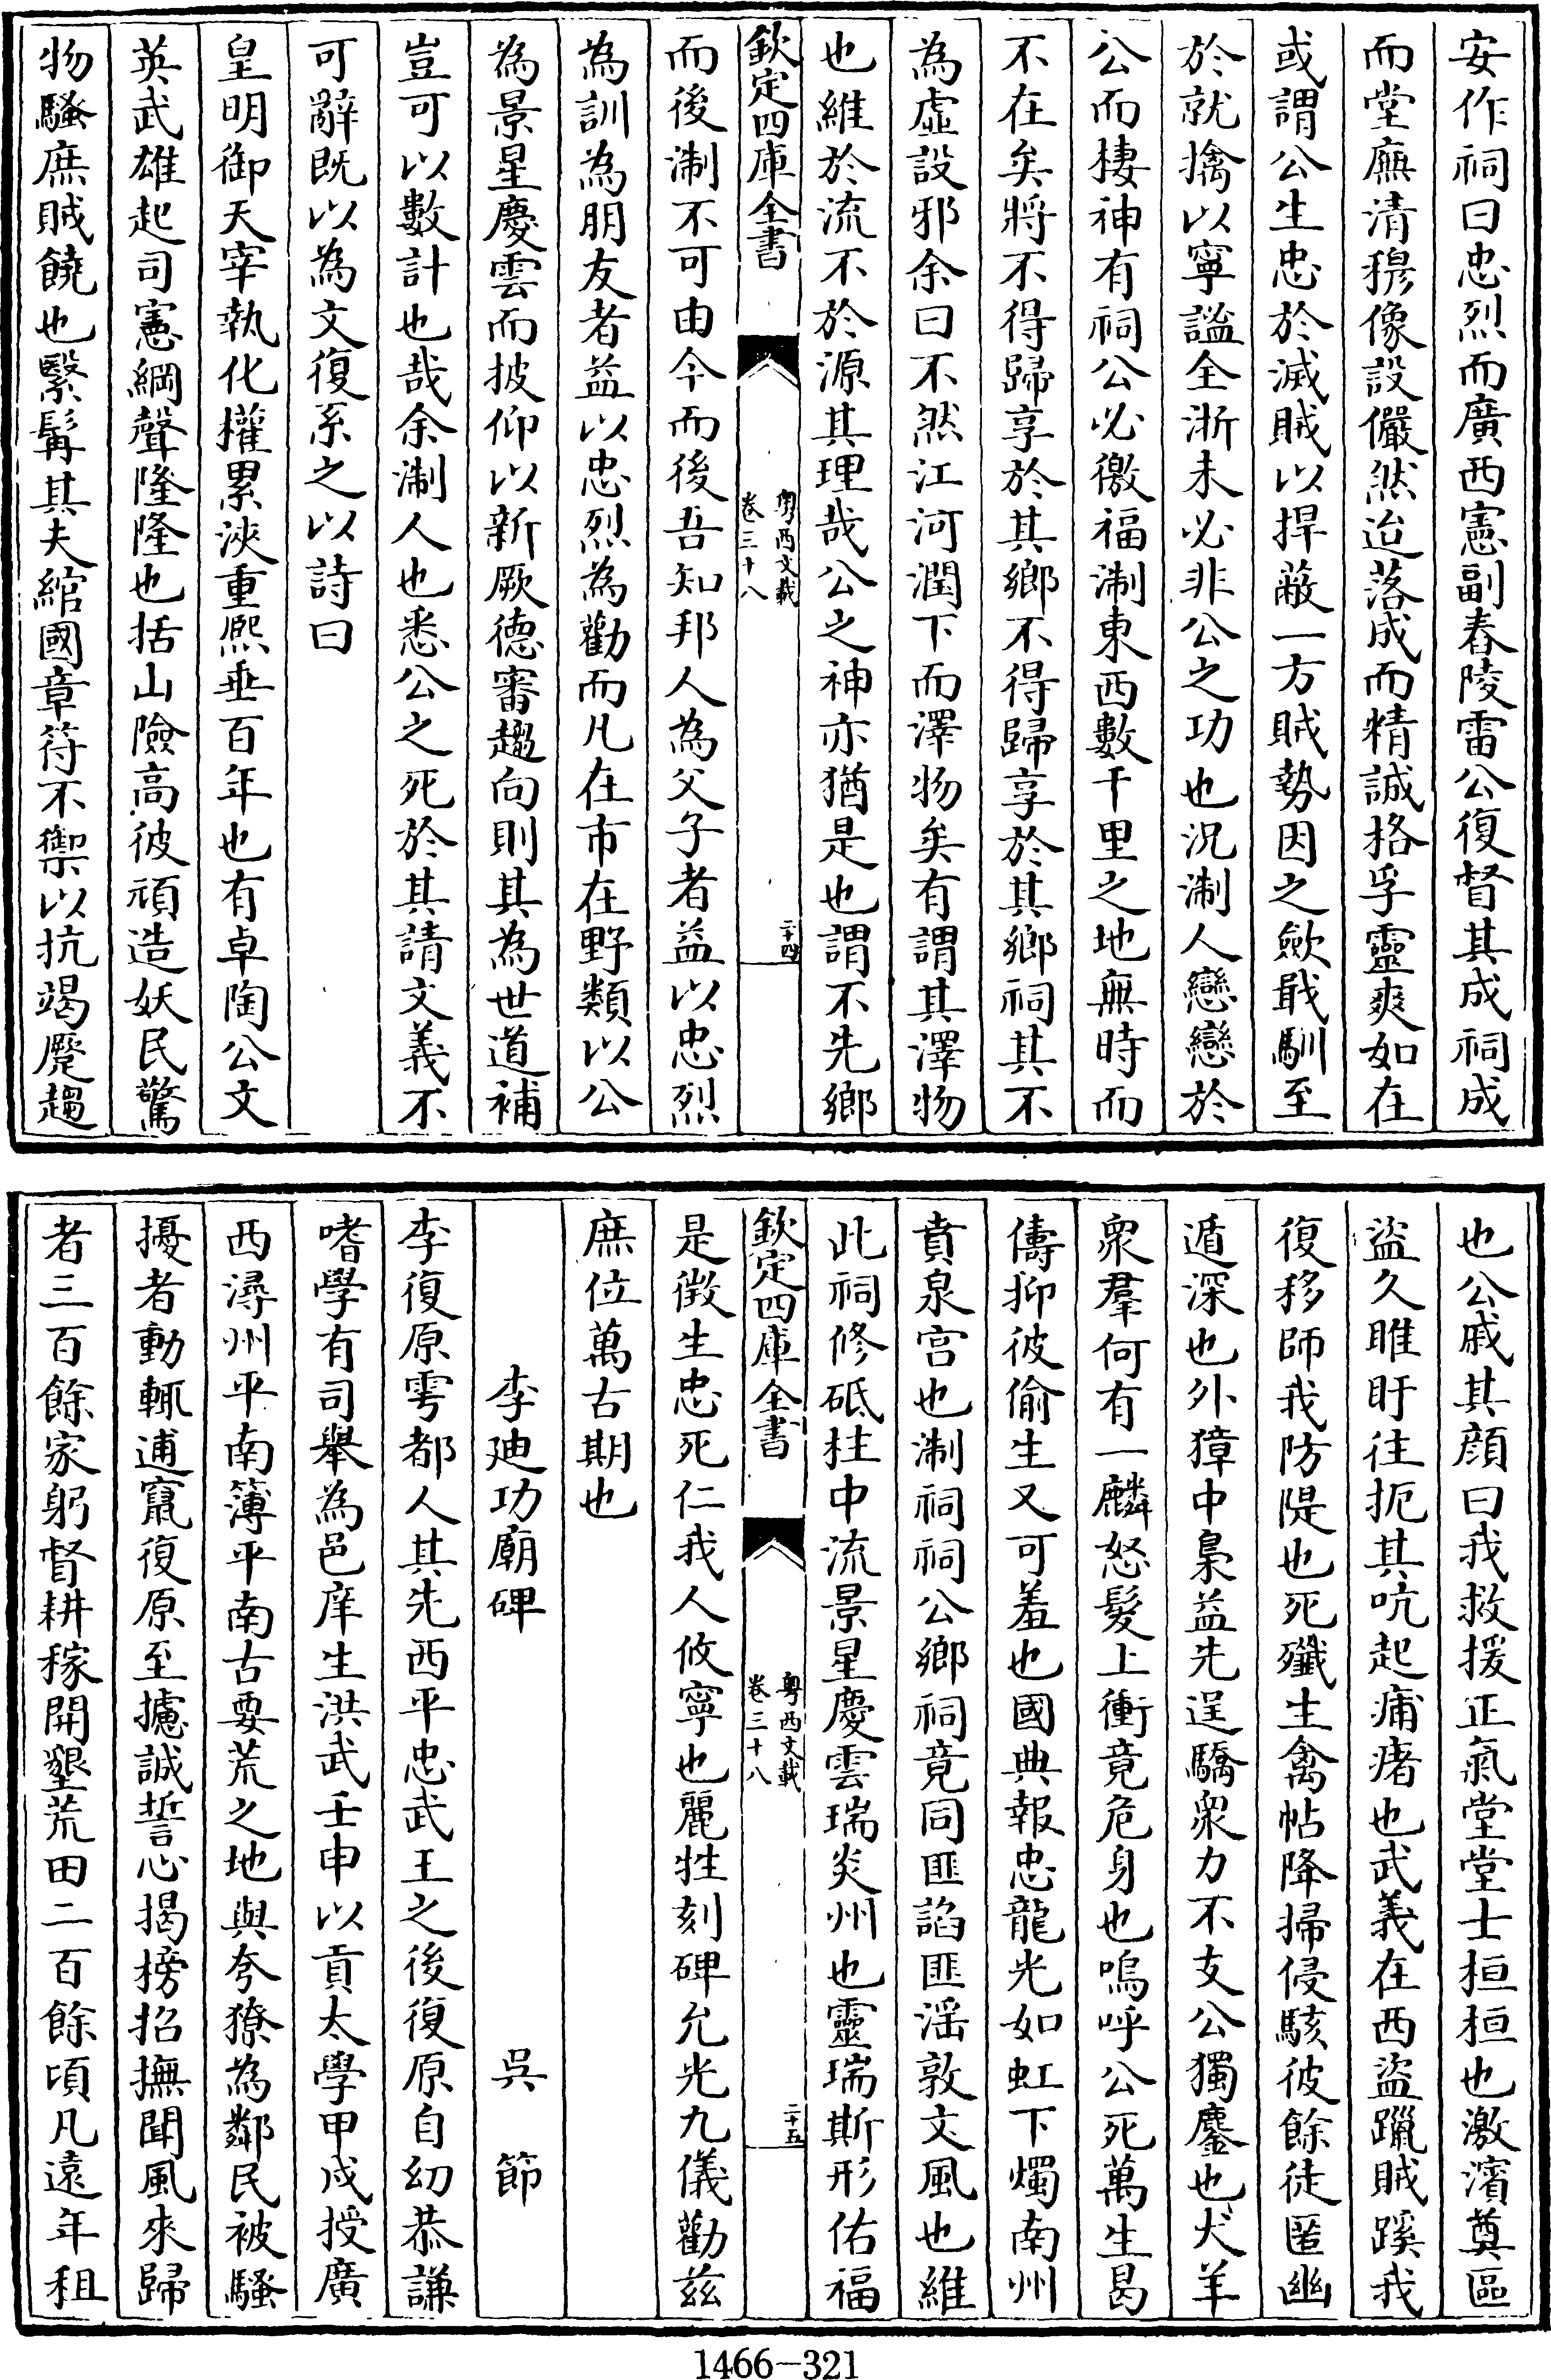 安作祠曰忠烈而廣西憲副舂陵雷公復督其成祠成
而堂廡清穆像設儼然迨落成而精誠格孚靈爽如在
或謂公生忠於滅賊以捍蔽一方賊勢因之歛戢馴至
於就擒以寧謐全浙未必非公之功也況淛人戀戀於
公而棲神有祠公必徼福淛東西數千里之地無時而
不在矣將不得歸享於其鄉不得歸享於其鄉祠其不
為虛設邪余曰不然江河潤下而澤物矣有謂其澤物
也維於流不於源其理哉公之神亦猶是也謂不先鄉
欽定四庫全書
粵西文載
卷三十八
二十四
而後淛不可由今而後吾知邦人為父子者益以忠烈
為訓為朋友者益以忠烈為勸而凡在市在野類以公
為景星慶雲而披仰以新厥德審趨向則其為世道補
豈可以數計也哉余淛人也悉公之死於其請文義不
可辭既以為文復系之以詩曰
皇明御天宰執化權累浹重熙垂百年也有卓陶公文
英武雄起司憲綱聲隆隆也括山險高彼頑造妖民驚
物騷庶賊饒也繄髯其夫綰國章符不禦以抗竭蹷趨
也公戚其顔曰我救援正氣堂堂士桓桓也激濱奠區
盜久睢盱往扼其吭起痡瘏也武義在西盜躐賊蹊我
復移師我防隄也死殲生禽帖降掃侵駭彼餘徒匿幽
遁深也外獐中梟益先逞驕衆力不支公獨鏖也犬羊
衆羣何有一麟怒髮上衝竟危身也嗚呼公死萬生曷
儔抑彼偷生又可羞也國典報忠龍光如虹下燭南州
賁泉宫也淛祠祠公鄉祠竟同匪謟匪滛敦文風也維
此祠修砥柱中流景星慶雲瑞炎州也靈瑞斯形佑福
欽定四庫全書
粵西文載
卷三十八
二十五
是徴生忠死仁我人攸寧也麗牲刻碑允光九儀勸兹
庶位萬古期也
李廸功廟碑 吳節
李復原雩都人其先西平忠武王之後復原自幼恭謙
嗜學有司舉為邑庠生洪武壬申以貢太學甲戍授廣
西潯州平南簿平南古要荒之地與夸獠為鄰民被騷
擾者動輒逋竄復原至攄誠誓心揭榜招撫聞風來歸
者三百餘家躬督耕稼開墾荒田二百餘頃凡遠年租
1466-321